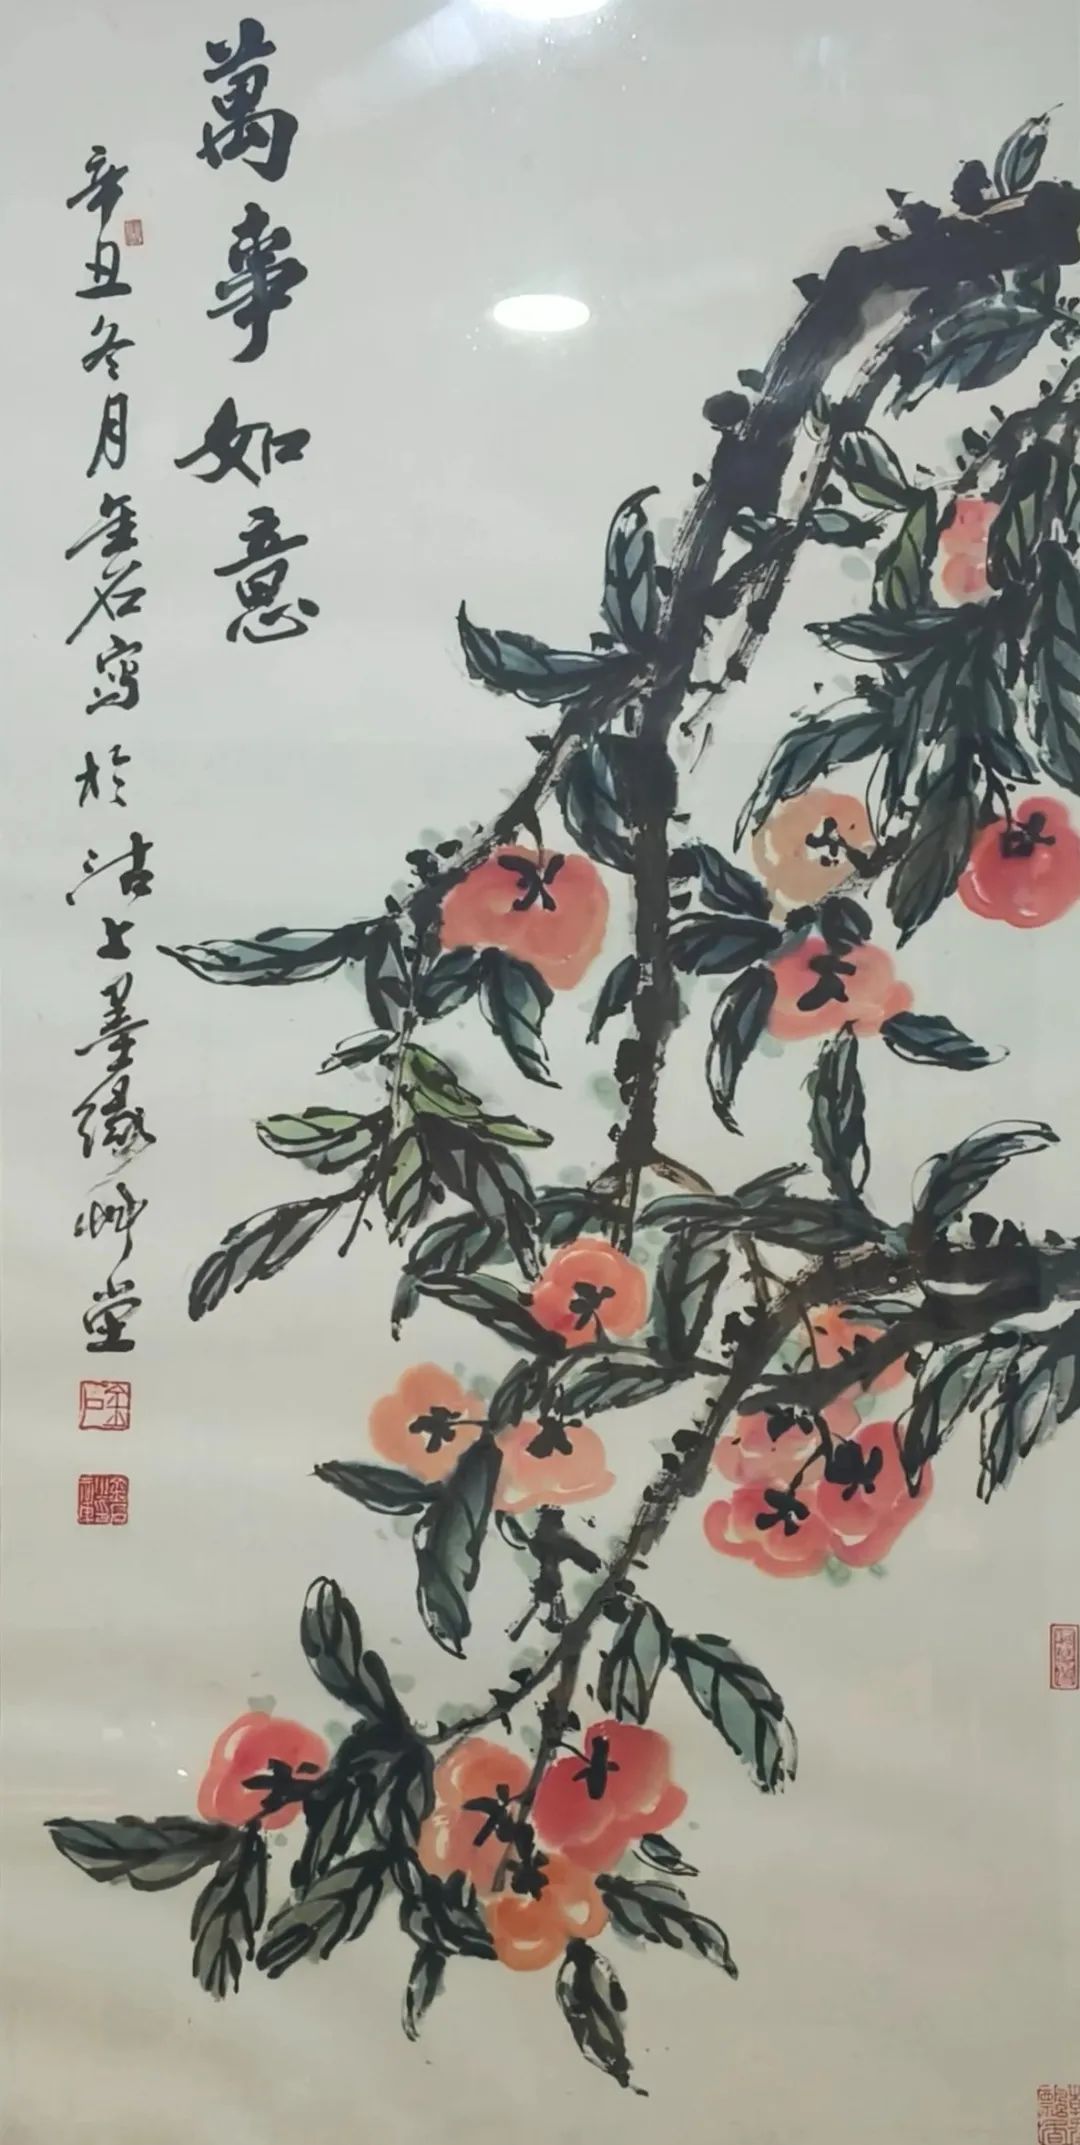 萬事如意
辛丑冬月金石寫於沽上墨緣艸堂
金石